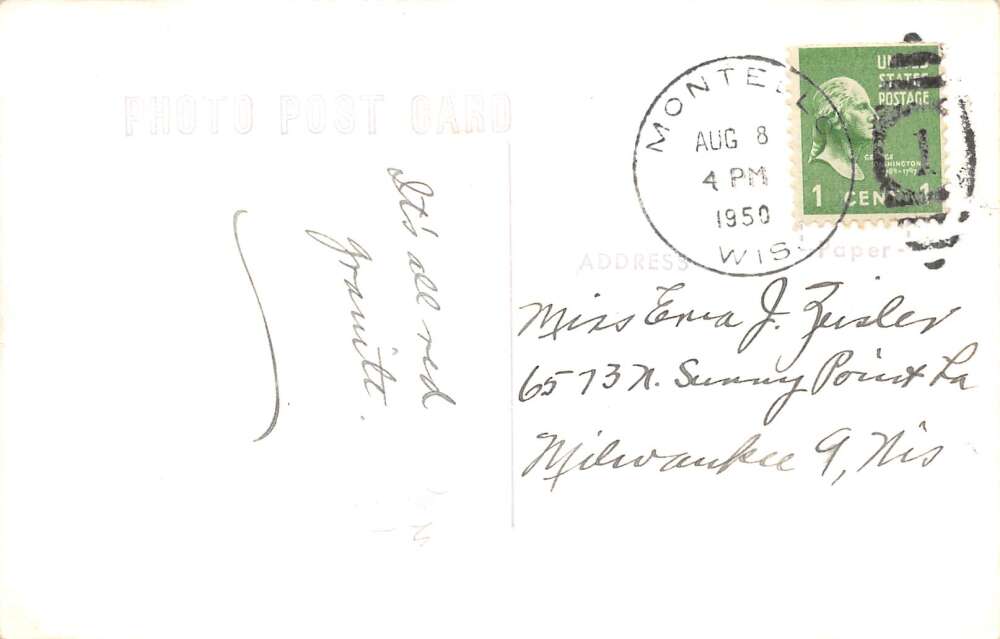 PHOTO POST CARD
It's all red
granite.
MONTELLO
AUG 8
4 PM
1950
WIS.
UNITED
STATES
POSTAGE
GEORGE
WASHINGTON
1 CENT 1
1
ADDRESS
Paper
Miss Erna J. Zeisler
6573 N. Sunny Point La
Milwaukee 9, Wis